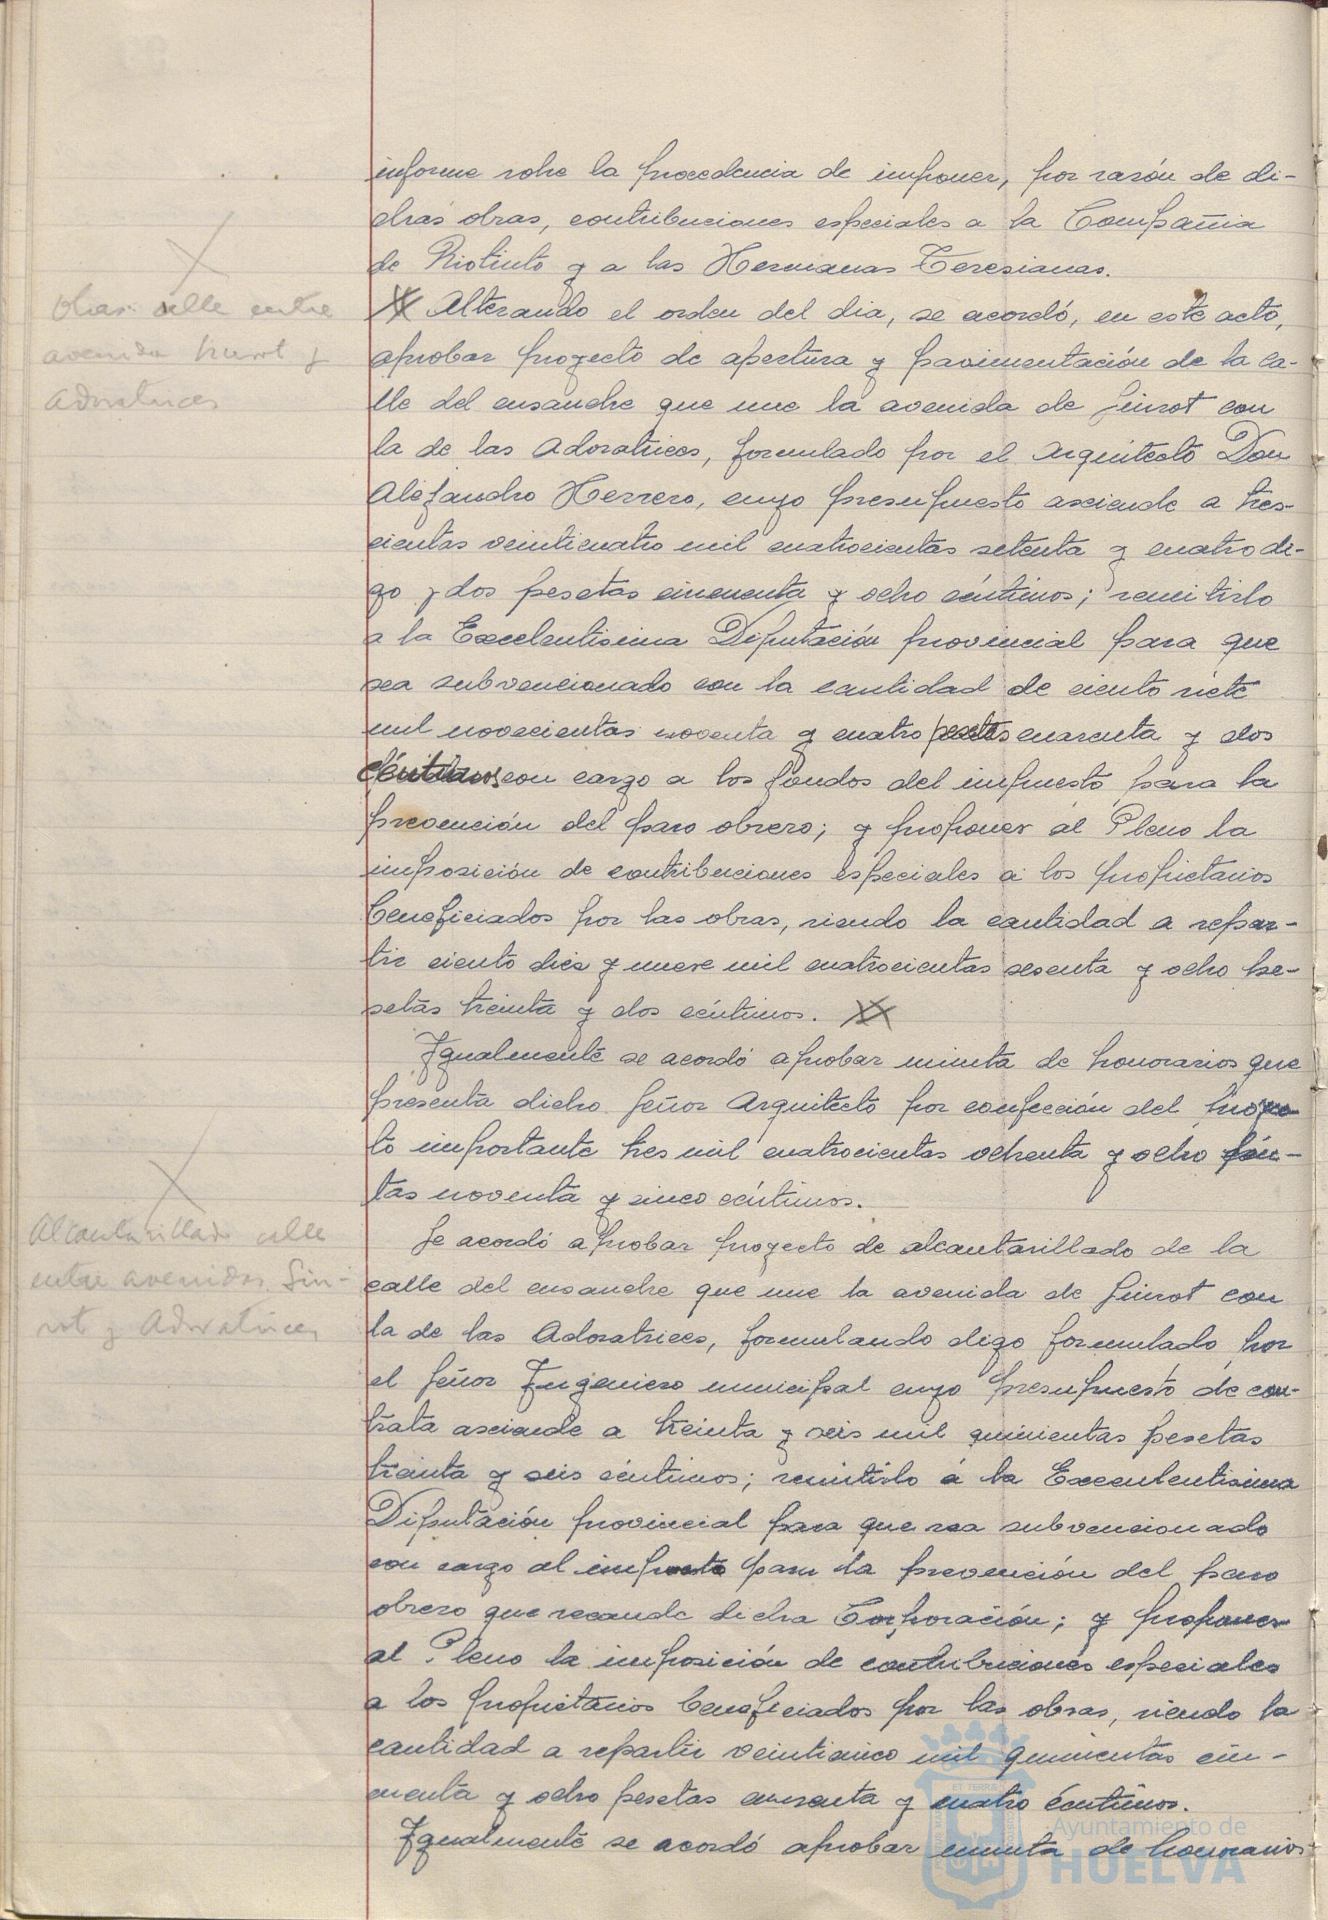 informe sobre la procedencia de imponer, por razón de di-
chas obras, contribuciones especiales a la Compañia
de Riotinto y a las Hermanas Teresianas.
Obras calle entre
avenida Guirot y
Adoratrices
Alterando el orden del dia, se acordó, en este acto,
aprobar proyecto de apertura y pavimentación de la ca-
lle del ensanche que une la avenida de Guirot con
la de las Adoratrices, formulado por el Arquitecto Don
Alejandro Herrero, cuyo presupuesto asciende a tres-
cientas veinticuatro mil cuatrocientas setenta y cuatro di-
go y dos pesetas cincuenta y ocho céntimos; remitirlo
a la Excelentisima Diputación provincial para que
sea subvencionado con la cantidad de ciento siete
mil novecientas noventa y cuatro pesetas cuarenta y dos
céntimos con cargo a los fondos del impuesto para la
prevención del paro obrero; y proponer al Pleno la
imposición de contribuciones especiales a los propietarios
beneficiados por las obras, siendo la cantidad a repar-
tir ciento diez y nueve mil cuatrocientas sesenta y ocho pe-
setas treinta y dos céntimos.
Igualmente se acordó aprobar minuta de honorarios que
presenta dicho Señor Arquitecto por confección del
to importante tres mil cuatrocientas ochenta y ocho
tas noventa y cinco céntimos.
Alcantarillado calle
entre avenidas Gui-
rot y Adoratrices
Se acordó aprobar proyecto de alcantarillado de la
calle del ensanche que une la avenida de Guirot con
la de las Adoratrices, formulando digo formulado por
el Señor Ingeniero municipal cuyo presupuesto de con-
trata asciende a treinta y seis mil quinientas pesetas
treinta y seis céntimos; remitirlo a la Excenlentisima
Diputación provincial para que sea subvencionado
con cargo al impuesto para la prevención del paro
obrero que recauda dicha Corporación; y proponer
al Pleno la imposición de contribuciones especiales
a los propietarios beneficiados por las obras, siendo la
cantidad a repartir veinticinco mil quinientas cin-
cuenta y ocho pesetas cuarenta y cuatro céntimos.
Igualmente se acordó aprobar minuta de honorarios
Ayuntamiento de
HUELVA